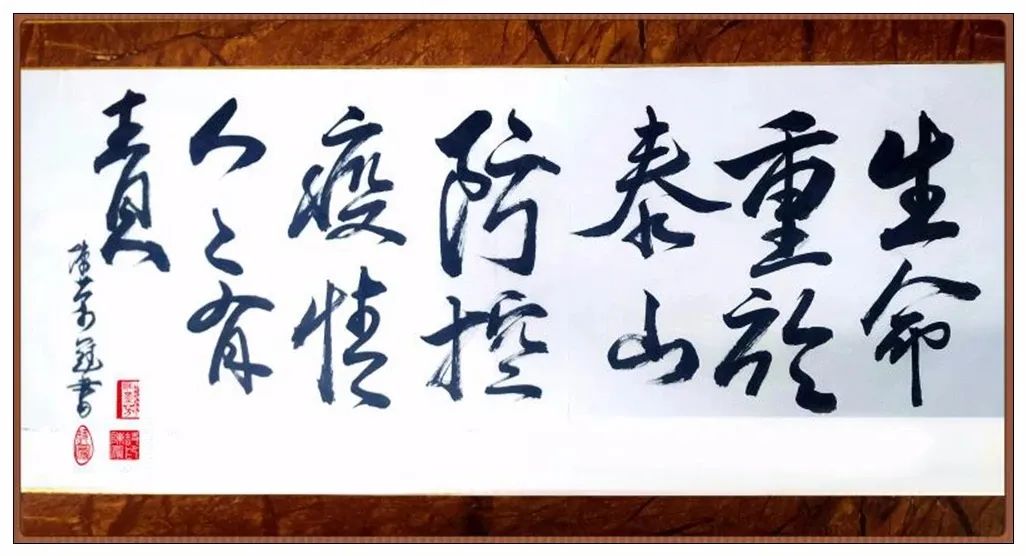 生命
重於
泰山
防控
疫情
人人有
责